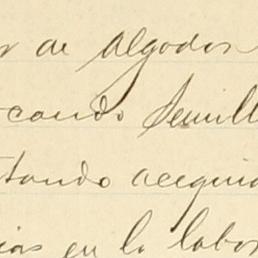 r de algodon
cando Semill
tando acequia
ias en la labor